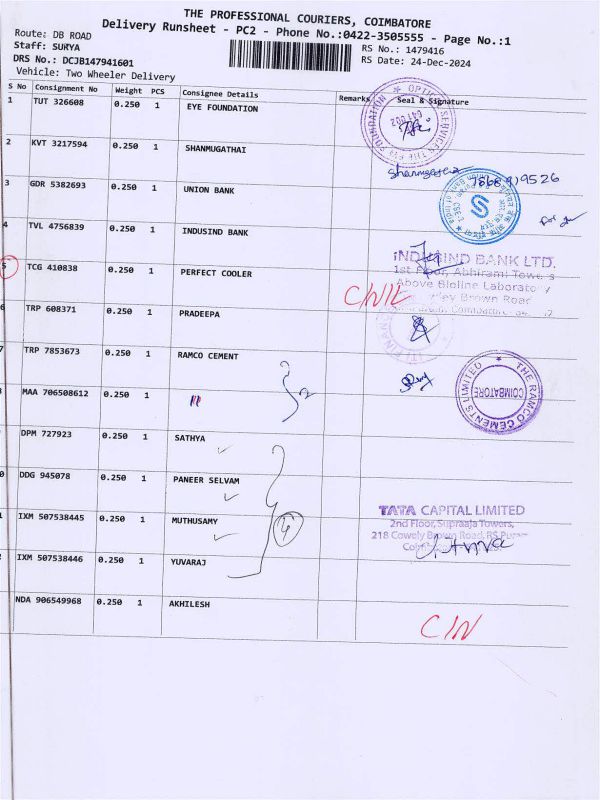 THE PROFESSIONAL COURIERS, COIMBATORE
Delivery Runsheet - PC2 - Phone No.:0422-3505555 - Page No.:1
Route: DB ROAD
Staff: SURYA
RS No.: 1479416
DRS No.: DCJB147941601
RS Date: 24-Dec-2024
Vehicle: Two Wheeler Delivery
S No Consignment No Weight PCS Consignee Details Remarks Seal & Signature
1 TUT 326608 0.250 1 EYE FOUNDATION
OPTICAL SERVICES THE EYE FOUNDATION
641002
2 KVT 3217594 0.250 1 SHANMUGATHAI
Shanmugatha 7868919526
3 GDR 5382693 0.250 1 UNION BANK
4 TVL 4756839 0.250 1 INDUSIND BANK
INDUSIND BANK LTD.
1st Floor, Abhirami Towers
Above Bioline Laboratory
Cowley Brown Road
5 TCG 410838 0.250 1 PERFECT COOLER
C/NIL
6 TRP 608371 0.250 1 PRADEEPA
7 TRP 7853673 0.250 1 RAMCO CEMENT
THE RAMCO CEMENTS LIMITED
COIMBATORE
MAA 706508612 0.250 1 11
2
DPM 727923 0.250 1 SATHYA
0 DDG 945078 0.250 1 PANEER SELVAM
1 IXM 507538445 0.250 1 MUTHUSAMY
4
TATA CAPITAL LIMITED
2nd Floor, Supraaja Towers,
218 Cowely Brown Road, RS Puram
2 IXM 507538446 0.250 1 YUVARAJ
NDA 906549968 0.250 1 AKHILESH
C/N